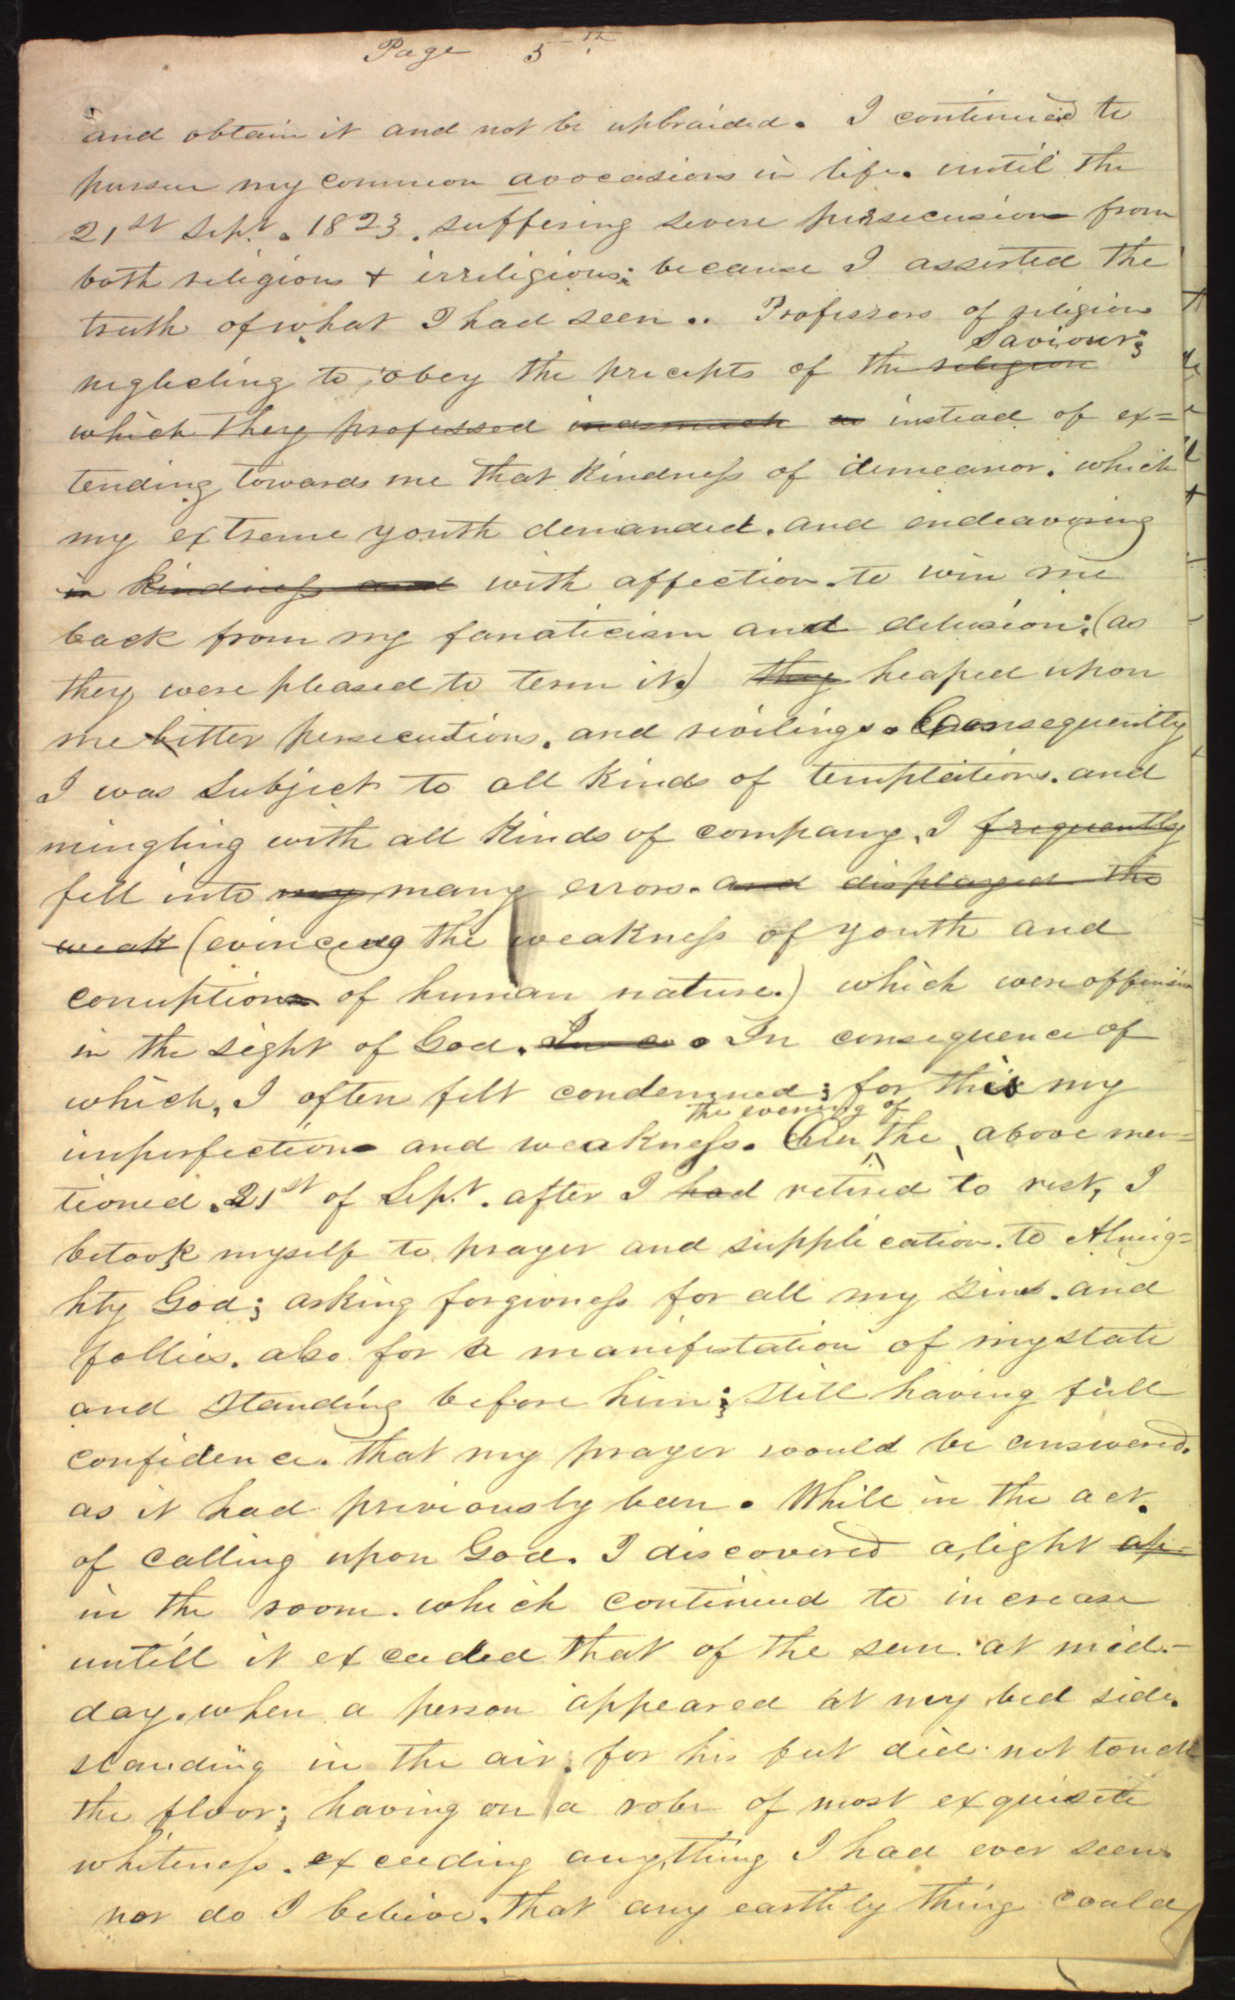 Page 5th.
and obtain it and not be upbraided. I continued to
pursue my common avocasions in life. until the
21st Sept. 1823. suffering severe persecusion from
both religious & irreligious; because I asserted the
truth of what I had seen.. Professors of religion
Saviour;
neglecting to obey the precepts of the religion
which they professed inasmuch as instead of ex=
tending towards me that kindness of demeanor. which
my extreme youth demanded. and endeavoring
in kindness and with affection. to win me
back from my fanaticism and delusion; (as
they were pleased to term it.) they heaped upon
me bitter persecutions. and revilings. Consequently
I was subject to all kinds of temptations. and
mingling with all kinds of company, I frequently
fell into my many errors. and displayed the
weak (evinceing the weakness of youth and
corruption of human nature.) which were offensive
in the sight of God. In co. In consequence of
which, I often felt condemned; for this my
the evening of
imperfection and weakness. On the above men=
tioned. 21st of Sept. after I had retired to rest, I
betook myself to prayer and supplication. to Almig=
hty God; asking forgivness for all my sins. and
follies. also for a manifestation of my state
and standing before him; still having full
confidence. that my prayer would be answered.
as it had previously been. While in the act.
of calling upon God. I discovered a light ap=
in the room. which continued to increase
untill it exceeded that of the sun at mid.-
day. when a person appeared at my bed side.
standing in the air. for his feet did not touch
the floor; having on a robe of most exquisite
whiteness. exceeding anything I had ever seen.
nor do I beleive. that any earthly thing could